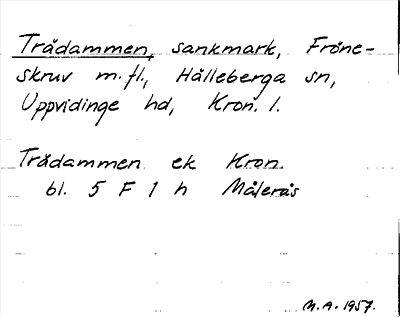 Trådammen, sankmark, Fröne-
skruv m.fl., Hälleberga sn,
Uppvidinge hd, Kron. l.
Trådammen ek Kron.
bl. 5 F 1 h Målerås
M.A. 1957.